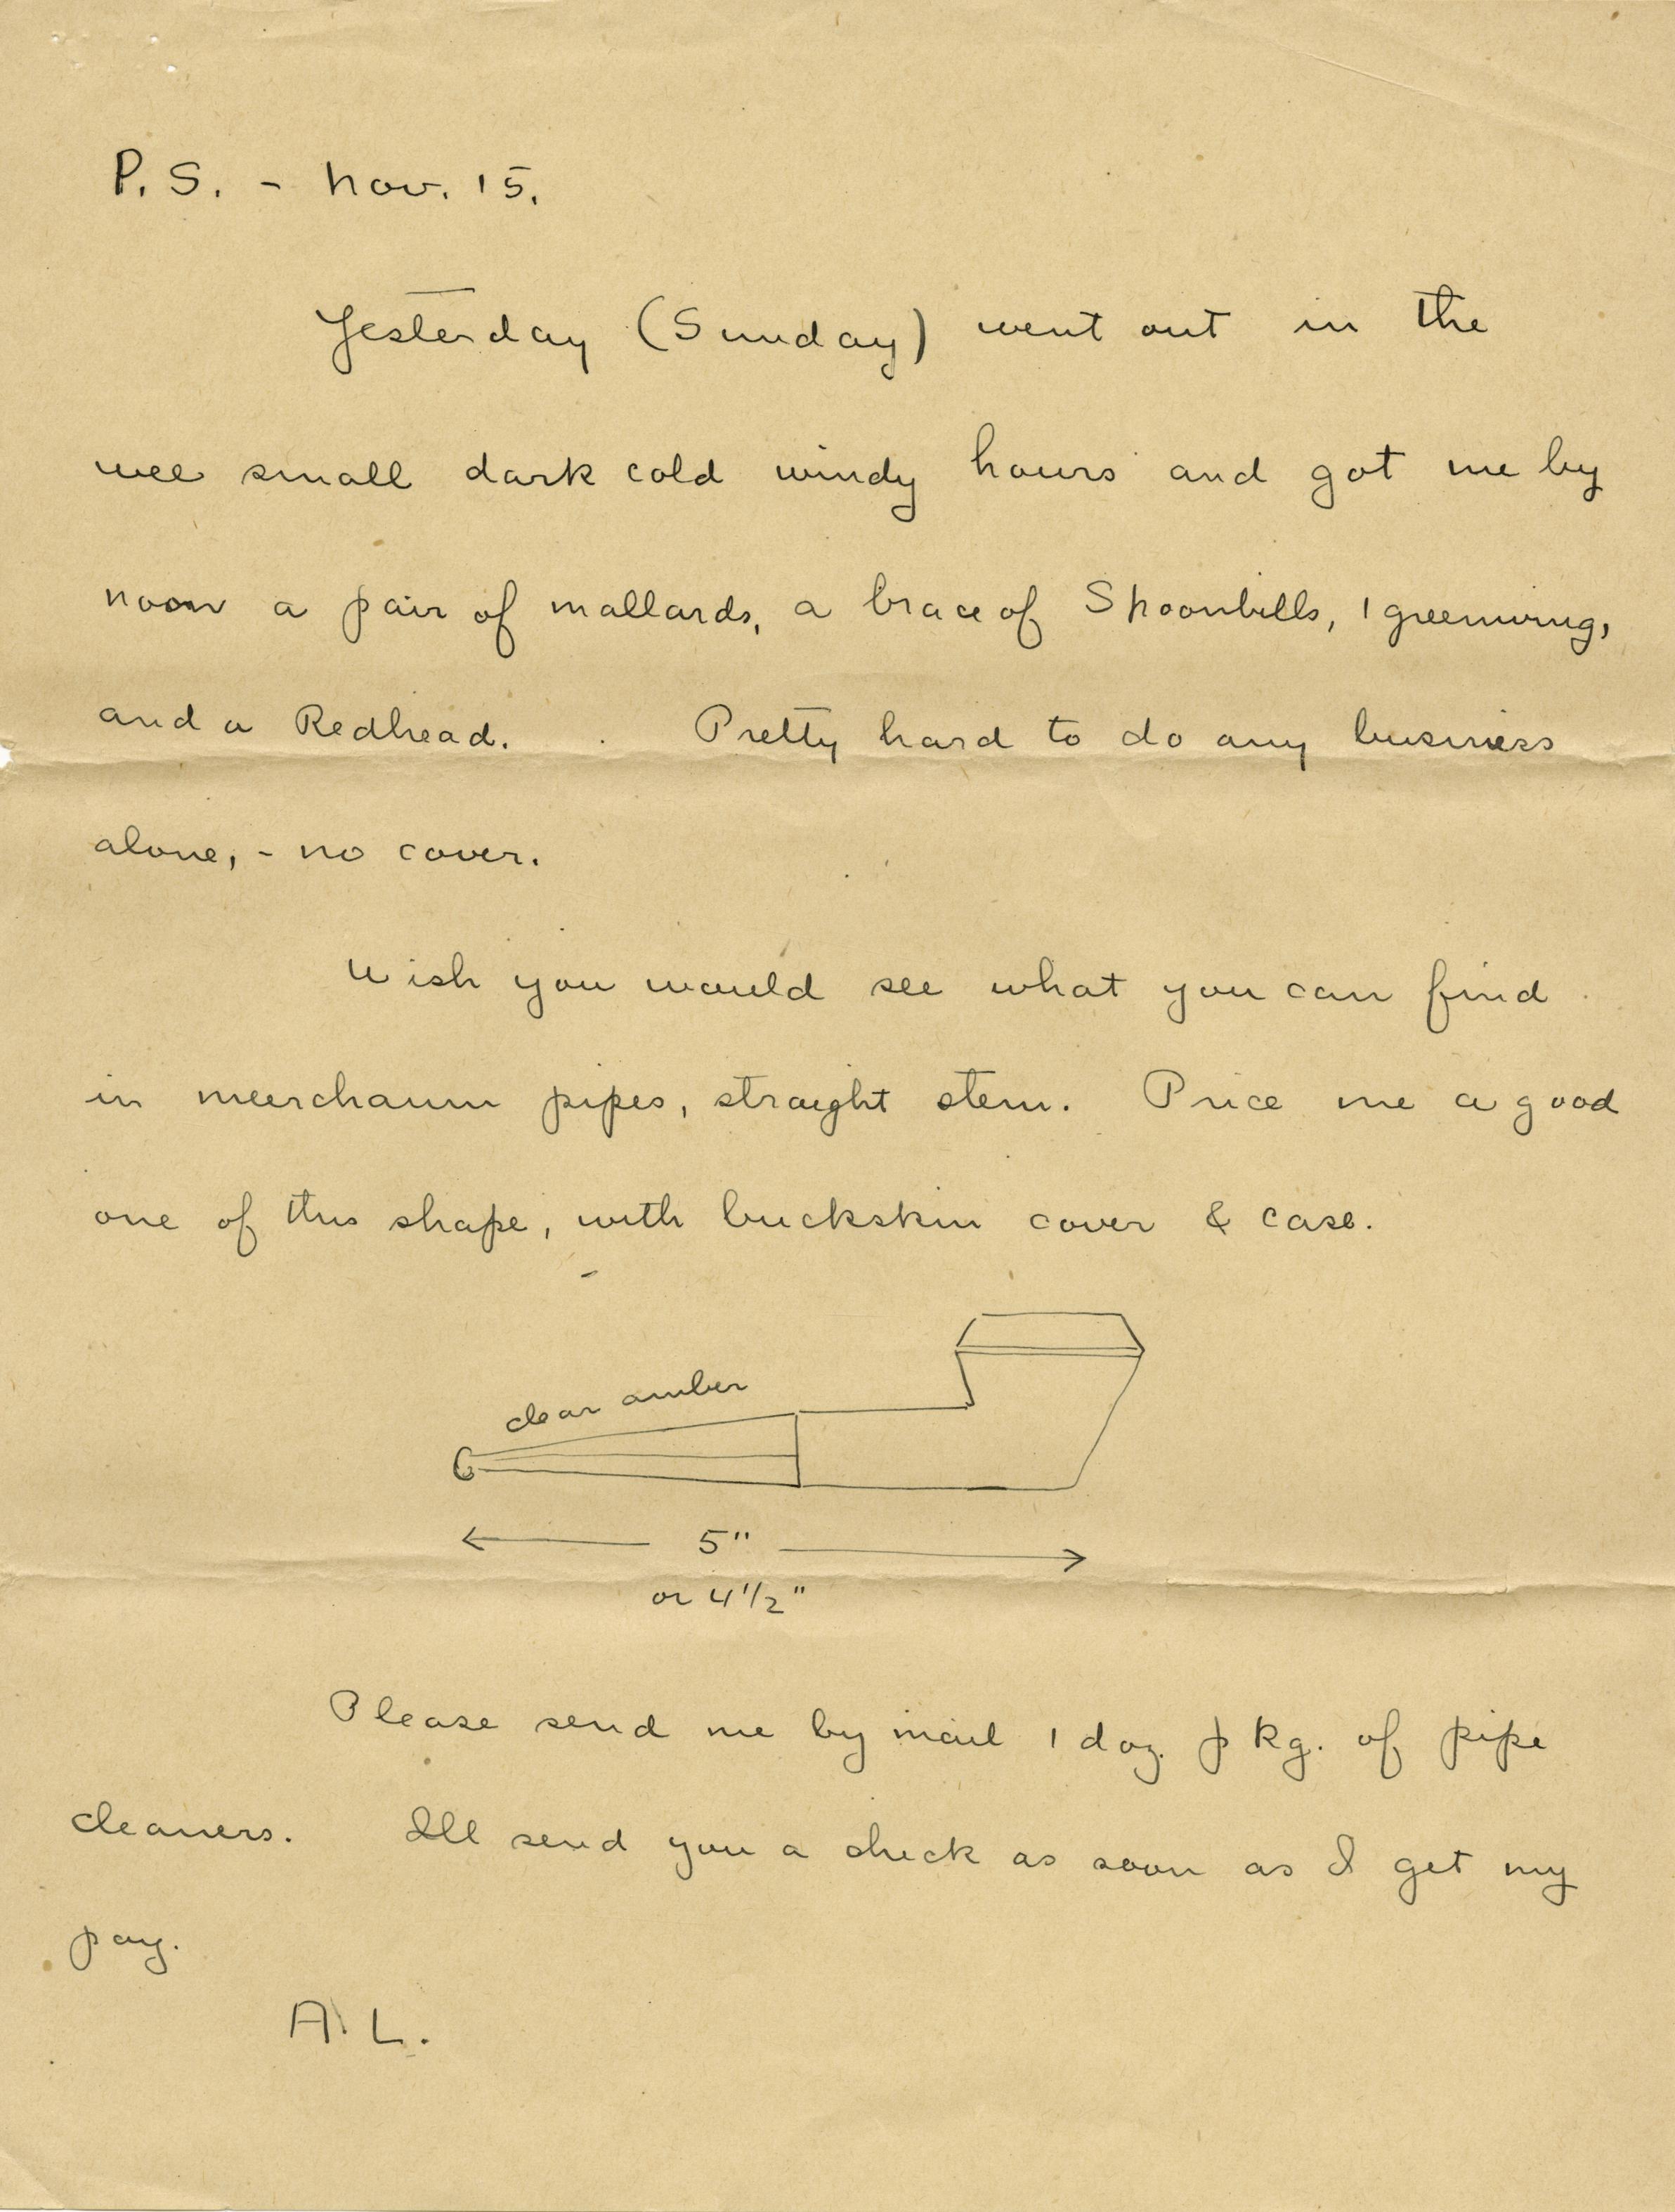 P.S. - Nov. 15.
Yesterday (Sunday) went out in the
wee small dark cold windy hours and got me by
noon a pair of mallards, a brace of Spoonbills, 1 greenwing,
and a Redhead. Pretty hard to do any business
alone, - no cover.
Wish you would see what you can find
in meerchaum pipes, straight stem. Price me a good
one of this shape, with buckskin cover & case.
clear amber
5"
or 4 1/2"
Please send me by mail 1 doz. pkg. of pipe
cleaners. Ill send you a check as soon as I get my
pay.
A.L.